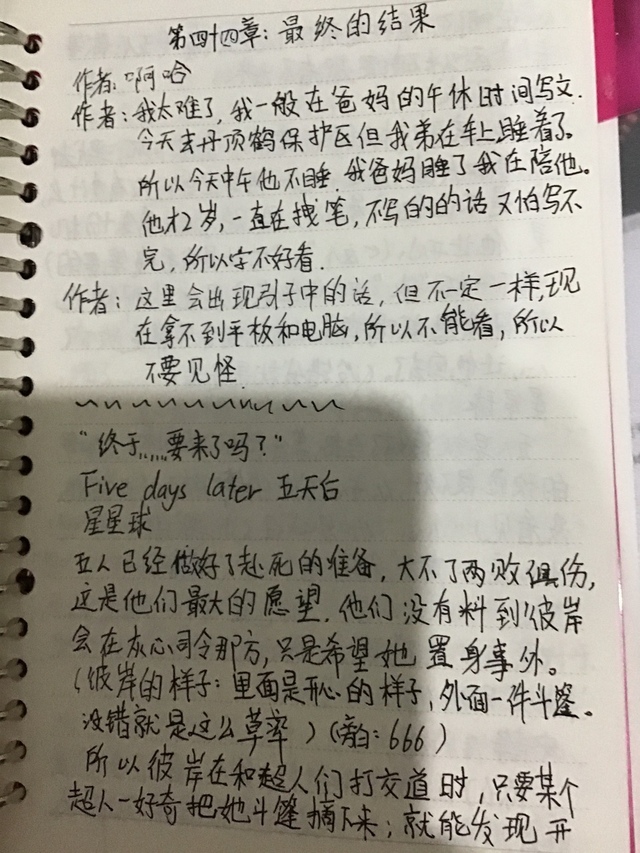 第四十四章：最终的结果
作者：啊哈
作者：我太难了，我一般在爸妈的午休时间写文.
今天去丹顶鹤保护区但我弟在车上睡着了
所以今天中午他不睡.我爸妈睡了我在陪他。
他才2岁，一直在拽笔，不写的的话又怕写不
完，所以字不好看.
作者：这里会出现引子中的话，但不一定一样,现
在拿不到平板和电脑，所以不能看，所以
不要见怪.
"终于……要来了吗？"
Five days later 五天后
星星球
五人已经做好了赴死的准备，大不了两败俱伤，
这是他们最大的愿望.他们没有料到彼岸
会在灰心司令那方，只是希望她置身事外。
（彼岸的样子：里面是开心的样子，外面一件斗篷。
没错就是这么草率）（旁白：666）
所以彼岸在和超人们打交道时，只要某个
超人一好奇把她斗篷摘下来；就能发现开